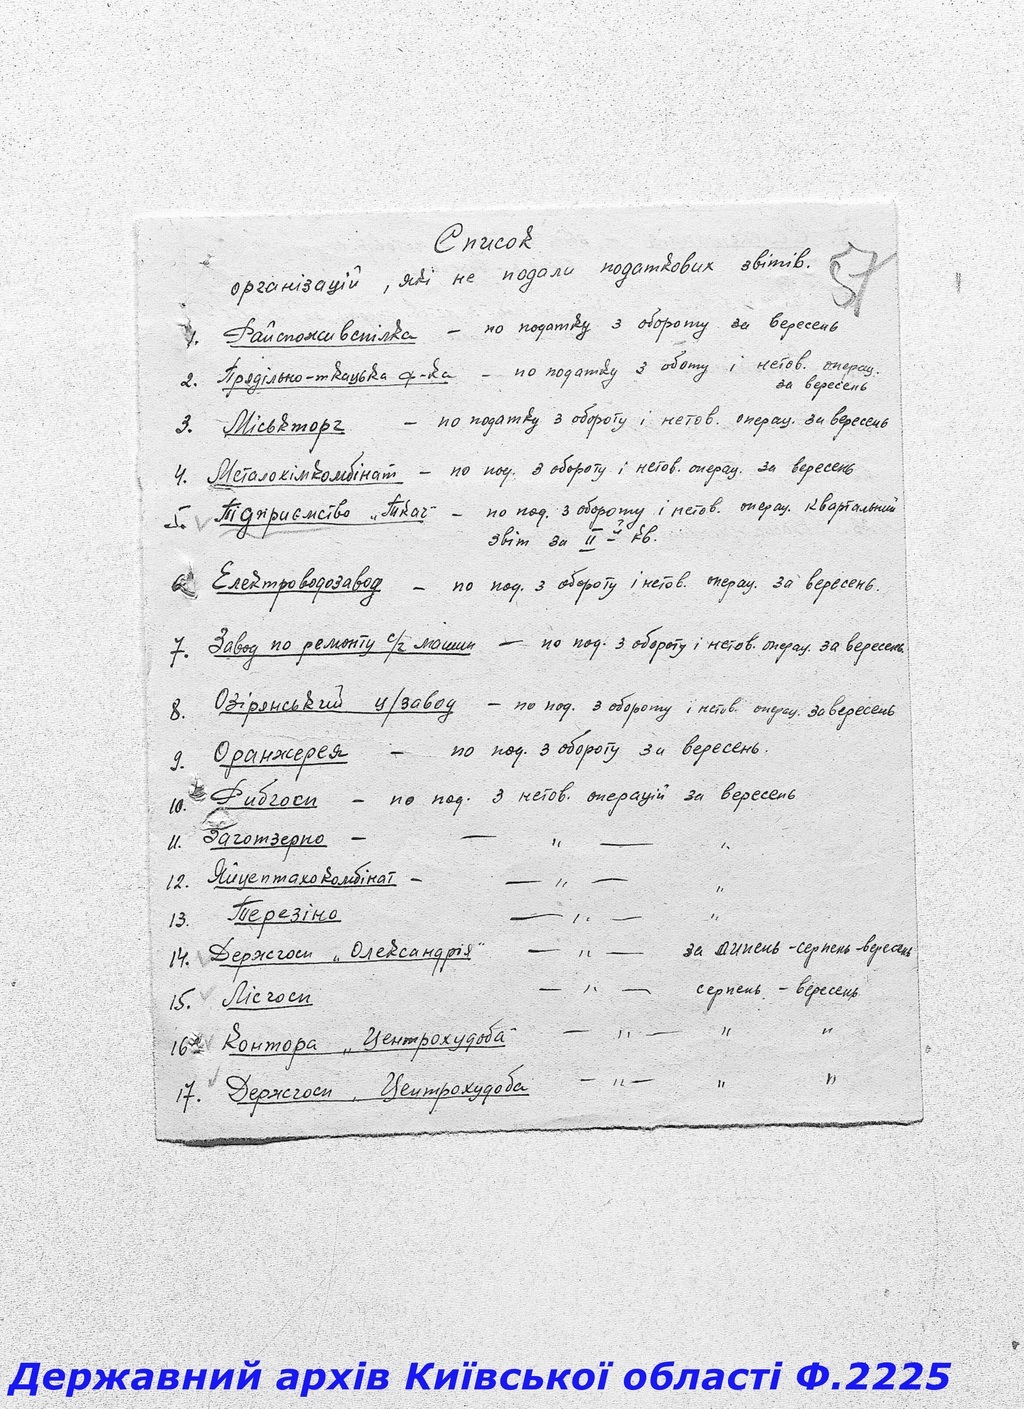 Список
організацій, які не подали податкових звітів.
57
1. Райспоживспілка – по податку з обороту за вересень
2. Прядільно-ткацька ф-ка – по податку з оботу і нетов. операц.
за вересень
3. Міськторг – по податку з обороту і нетов. операц. за вересень
4. Металохімкомбінат – по под. з обороту і нетов. операц. за вересень
5. Підприємство „Ткач" – по под. з обороту і нетов. операц. квартальний
звіт за II – кв.
6. Електроводозавод – по под. з обороту і нетов. операц. за вересень.
7. Завод по ремонту с/г машин – по под. з обороту і нетов. операц. за вересень
8. Озірянський ц/завод – по под. з обороту і нетов. операц. за вересень
9. Оранжерея – по под. з обороту за вересень.
10. Рибгосп – по под. з нетов. операцій за вересень
11. Заготзерно – — " — "
12. Яйцептахокомбінат – — " — "
13. Терезіно — " — "
14. Держгосп „Олександрія" — " — за липень - серпень - вересень
15. Лісгосп — " — серпень - вересень
16. Контора „Центрохудоба" — " — " "
17. Держгосп „Центрохудоба — " — " "
Державний архів Київської області Ф.2225